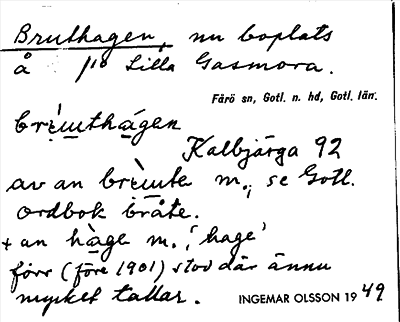 Bruthagen, nu boplats
å 1/10 Lilla Gasmora.
Fårö sn, Gotl. n. hd, Gotl. län.
brèuthágen
Kalbjärga 92
av an brèute m., se Gotl.
ordbok bråte.
+ an hàge m. 'hage'
förr (före 1901) stod där ännu
mycket tallar.
INGEMAR OLSSON 1949